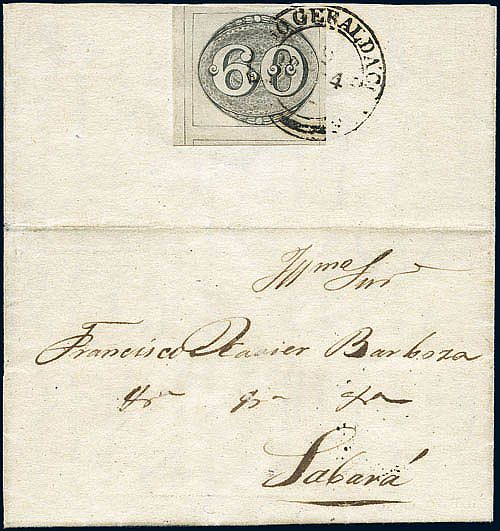 60
O GERAL DA C
4
Illmo Snr
Francisco Xavier Barboza
Sabará